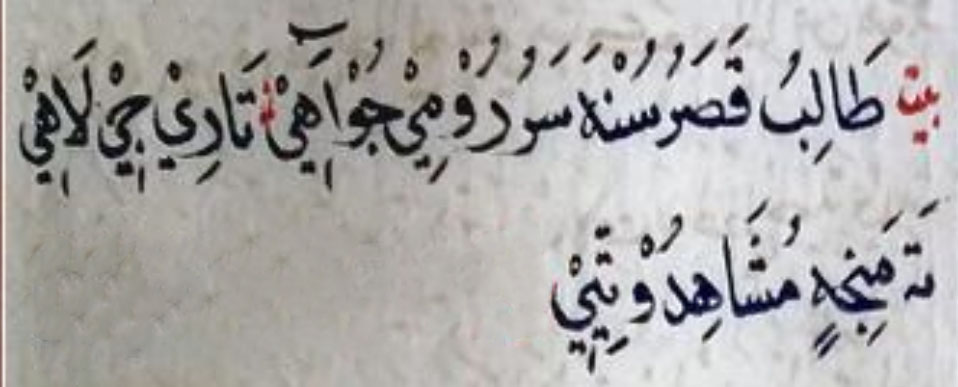 بيت طَالِبُ قَصَرُ سُنْهَ سَرَ دُرُوْمِيْ جُوْ آهِيْ تَادِيْ جِيْ لَاهِيْ
تَہ مَنِجهٍ مُشَاهِدُوْ تِئِيْ